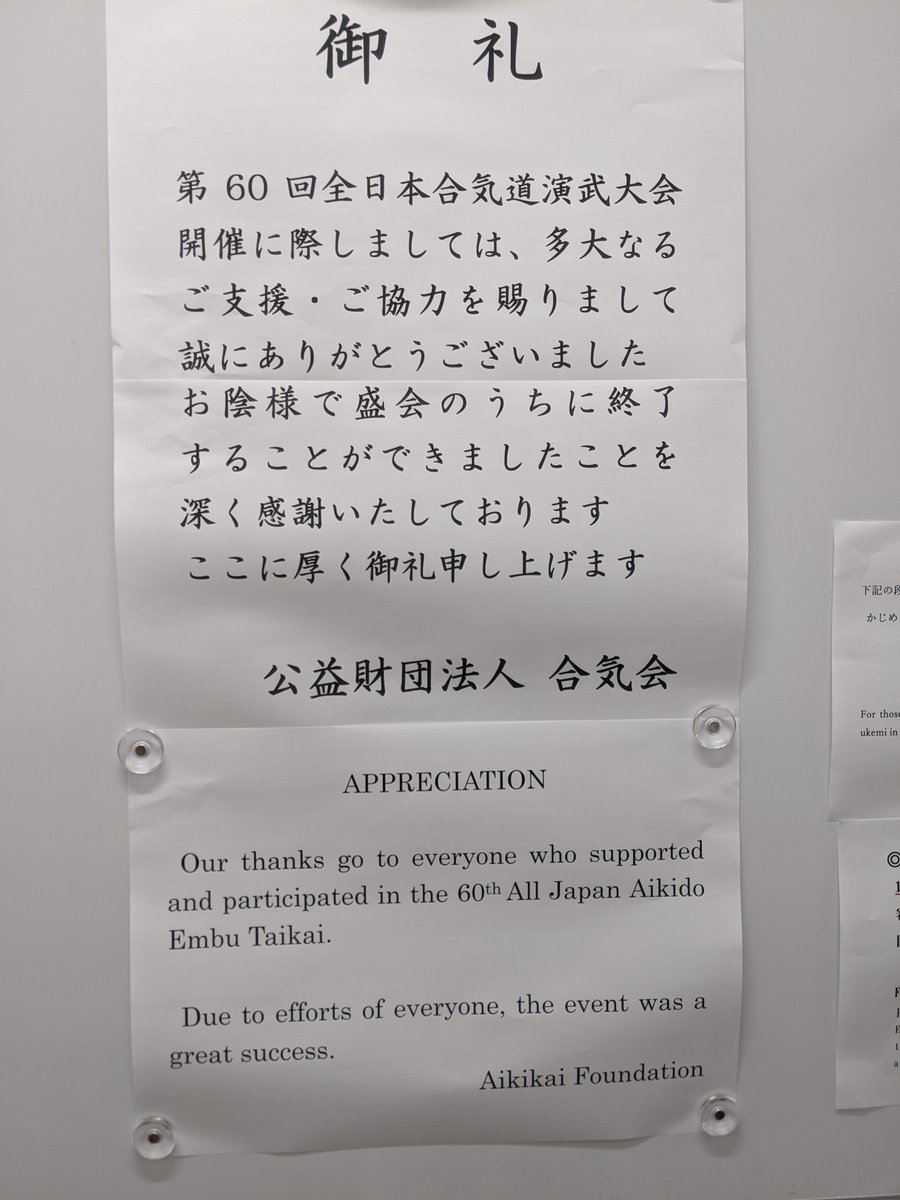 御 礼
第 60 回全日本合気道演武大会
開催に際しましては、多大なる
ご支援・ご協力を賜りまして
誠にありがとうございました
お陰様で盛会のうちに終了
することができましたことを
深く感謝いたしております
ここに厚く御礼申し上げます
公益財団法人 合気会
APPRECIATION
Our thanks go to everyone who supported
and participated in the 60th All Japan Aikido
Embu Taikai.
Due to efforts of everyone, the event was a
great success.
Aikikai Foundation
下記の段
かじめ
For those
ukemi in